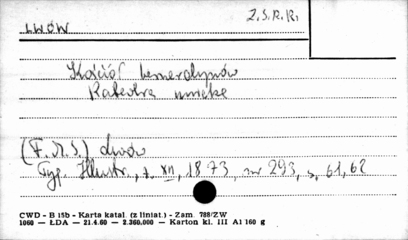 LWÓW
Z.S.R.R.
Kościół bernardynów
Katedra
(F.M.S.) Lwów
Tyg. Illustr., t. XII, 1873, nr 293, s. 61, 62
CWD - B 15b - Karta katal. (z liniat.) - Zam. 788/ZW
1060 — ŁDA — 21.4.60 — 2.360.000 — Karton kl. III A1 160 g